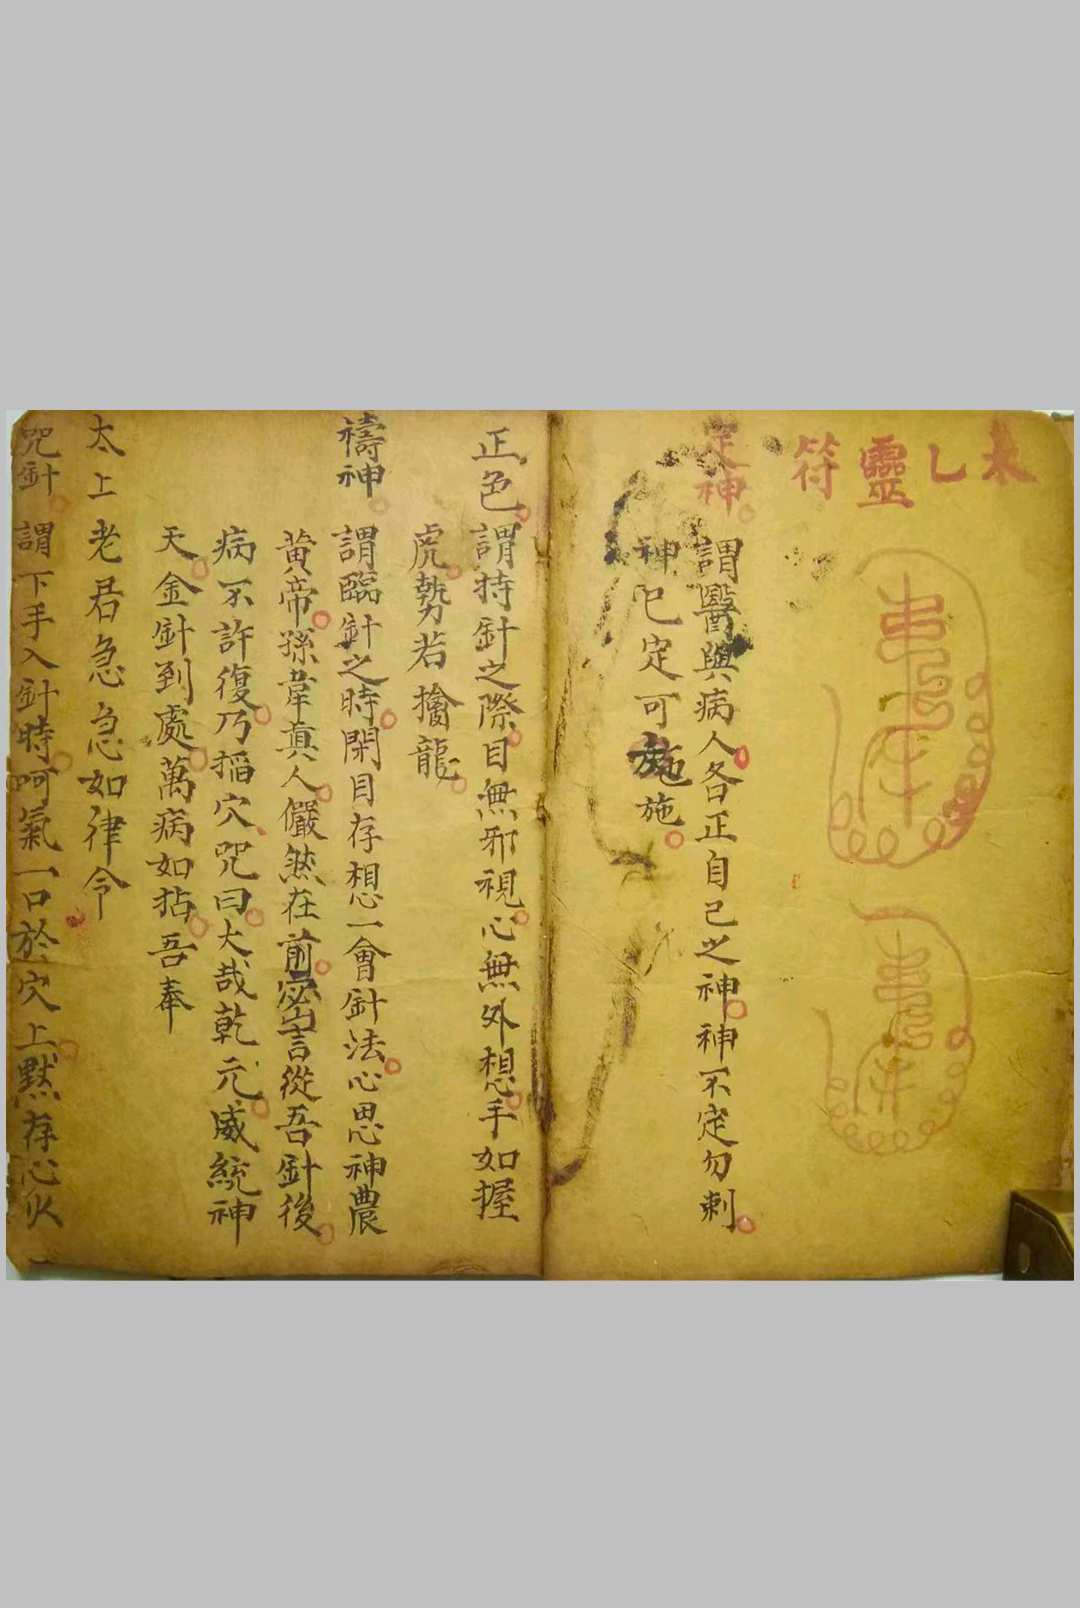 太乙靈符
定神
謂醫與病人各正自己之神神不定勿刺
神已定可施施
正色謂持針之際目無邪視心無外想手如握
虎勢若擒龍
禱神謂臨針之時閉目存想一會針法心思神農
黃帝孫韋真人儼然在前密言從吾針後
病不許復乃搯穴咒曰大哉乾元威統神
天金針到處萬病如拈吾奉
太上老君急急如律令
咒針謂下手入針時呵氣一口於穴上默存心火